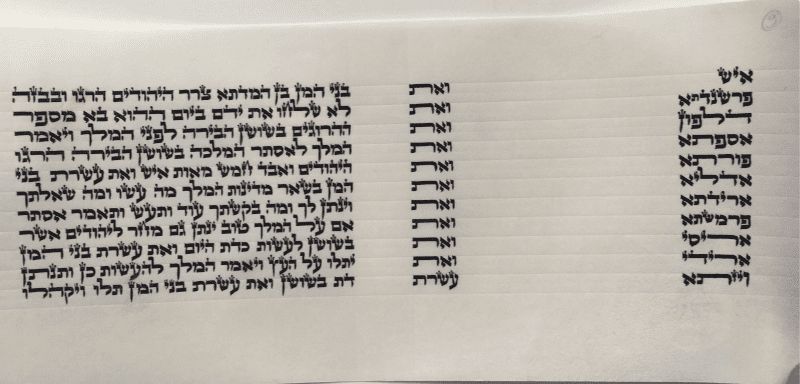 איש ואת
פרשנדתא ואת
דלפון ואת
אספתא ואת
פורתא ואת
אדליא ואת
ארידתא ואת
פרמשתא ואת
אריסי ואת
ארידי ואת
ויזתא עשרת
בני המן בן המדתא צרר היהודים הרגו ובבזה
לא שלחו את ידם ביום ההוא בא מספר
ההרוגים בשושן הבירה לפני המלך ויאמר
המלך לאסתר המלכה בשושן הבירה הרגו
היהודים ואבד חמש מאות איש ואת עשרת בני
המן בשאר מדינות המלך מה עשו ומה שאלתך
וינתן לך ומה בקשתך עוד ותעש ותאמר אסתר
אם על המלך טוב ינתן גם מחר ליהודים אשר
בשושן לעשות כדת היום ואת עשרת בני המן
יתלו על העץ ויאמר המלך להעשות כן ותנתן
דת בשושן ואת עשרת בני המן תלו ויקהלו